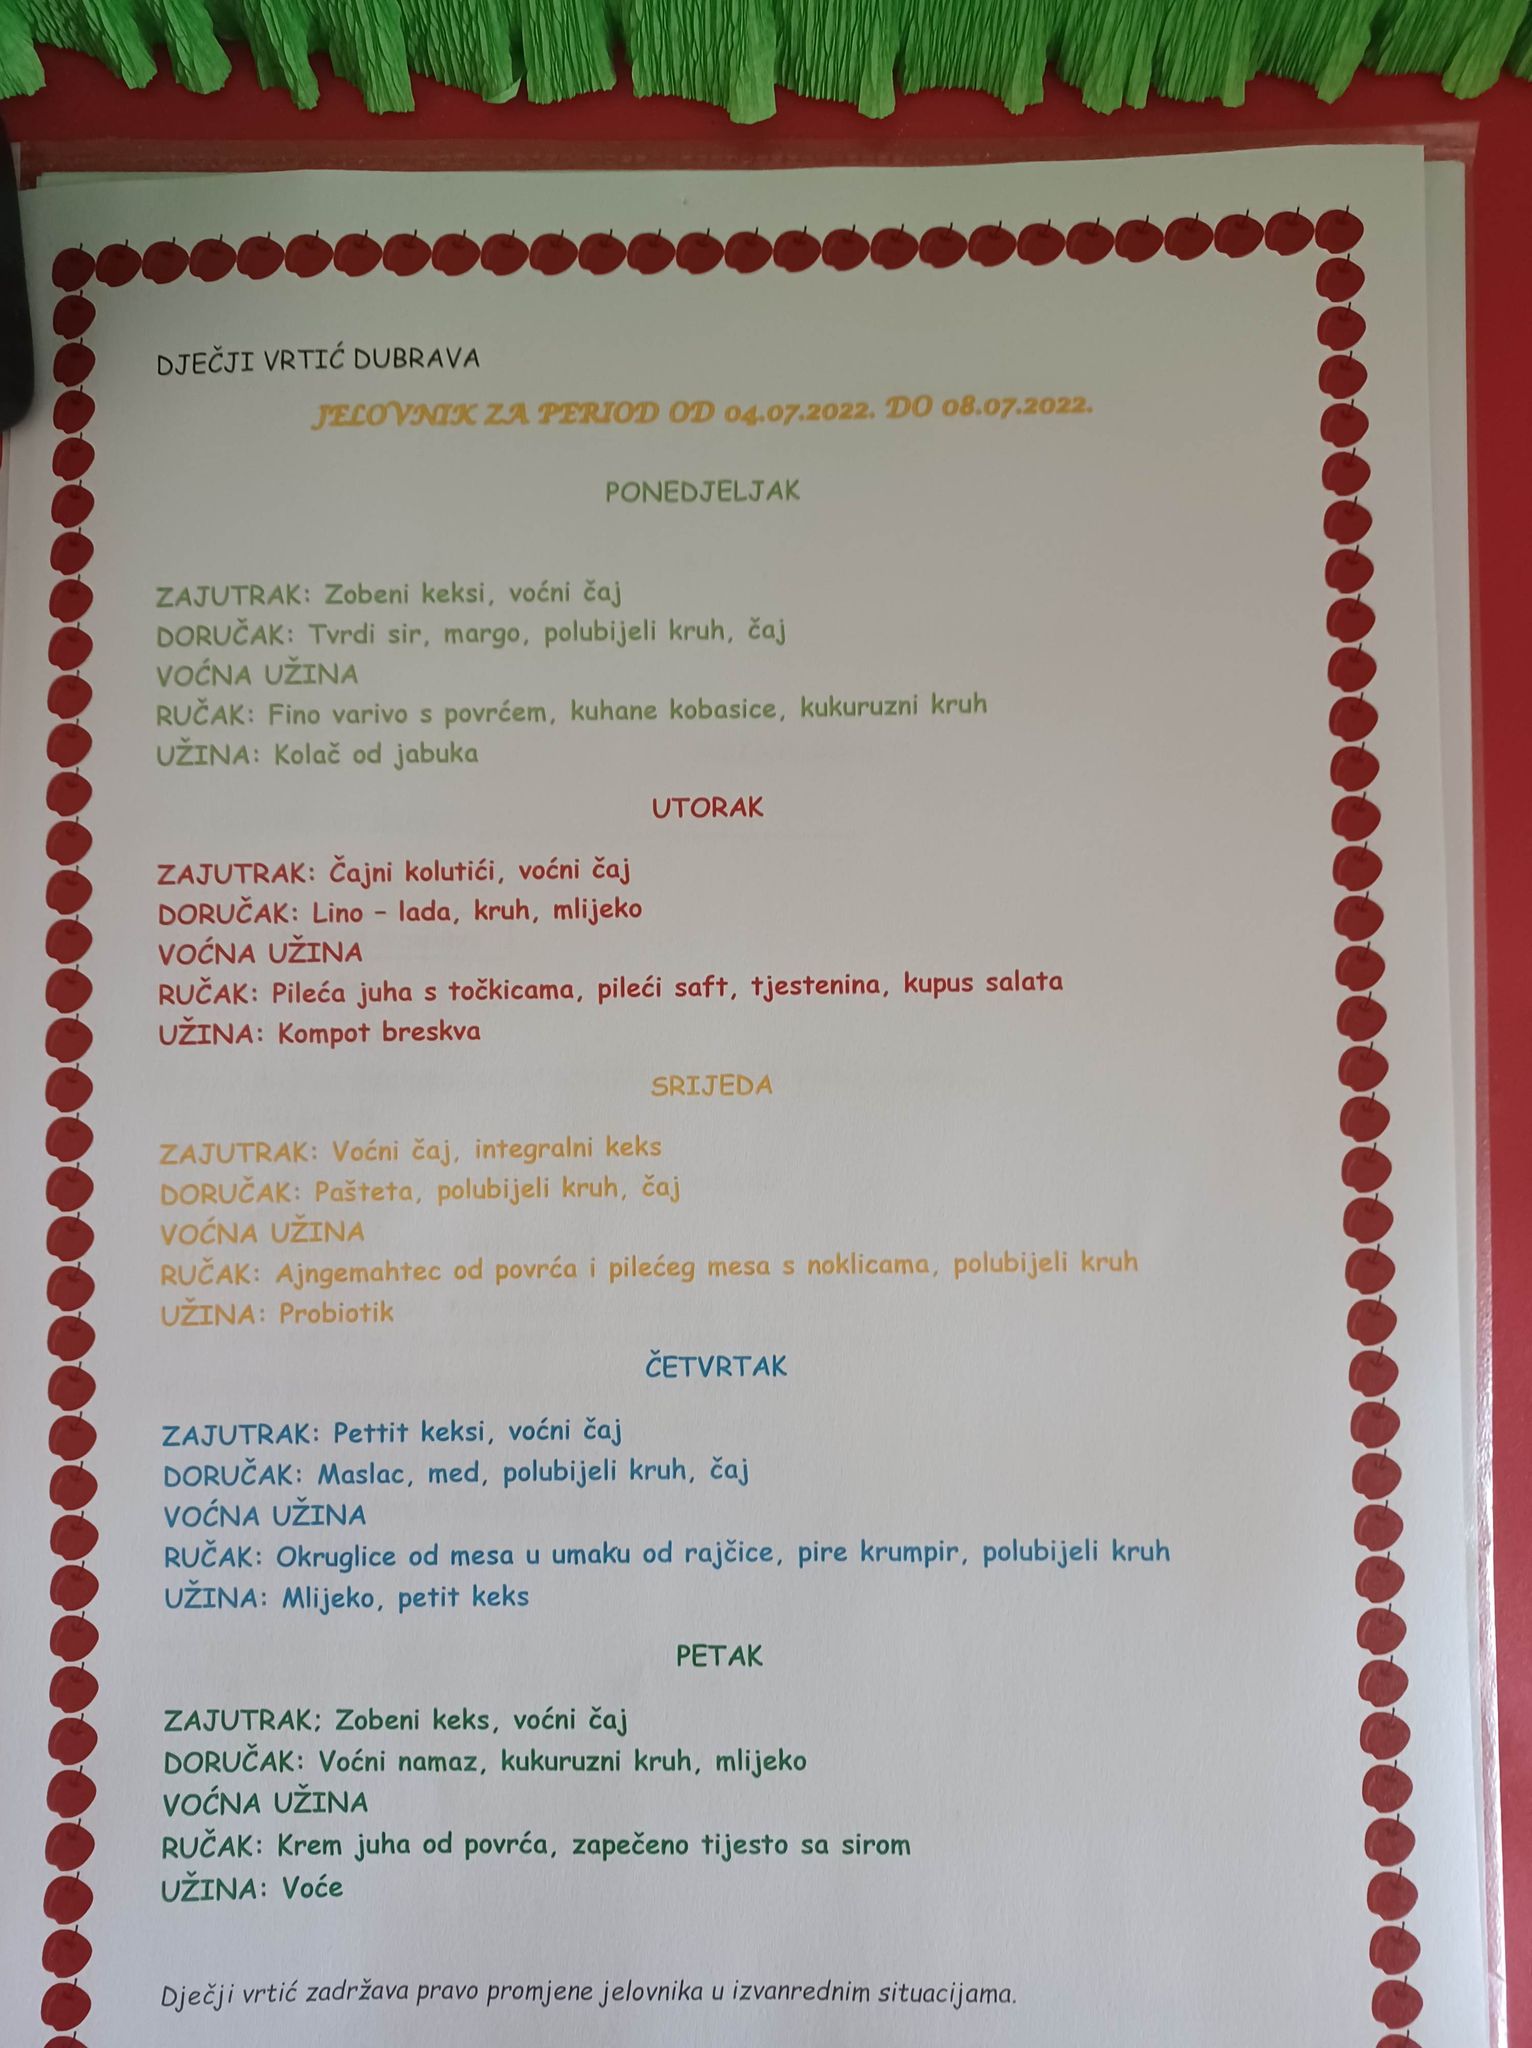 DJEČJI VRTIĆ DUBRAVA
JELOVNIK ZA PERIOD OD 04.07.2022. DO 08.07.2022.
PONEDJELJAK
ZAJUTRAK: Zobeni keksi, voćni čaj
DORUČAK: Tvrdi sir, margo, polubijeli kruh, čaj
VOĆNA UŽINA
RUČAK: Fino varivo s povrćem, kuhane kobasice, kukuruzni kruh
UŽINA: Kolač od jabuka
UTORAK
ZAJUTRAK: Čajni kolutići, voćni čaj
DORUČAK: Lino – lada, kruh, mlijeko
VOĆNA UŽINA
RUČAK: Pileća juha s točkicama, pileći saft, tjestenina, kupus salata
UŽINA: Kompot breskva
SRIJEDA
ZAJUTRAK: Voćni čaj, integralni keks
DORUČAK: Pašteta, polubijeli kruh, čaj
VOĆNA UŽINA
RUČAK: Ajngemahtec od povrća i pilećeg mesa s noklicama, polubijeli kruh
UŽINA: Probiotik
ČETVRTAK
ZAJUTRAK: Pettit keksi, voćni čaj
DORUČAK: Maslac, med, polubijeli kruh, čaj
VOĆNA UŽINA
RUČAK: Okruglice od mesa u umaku od rajčice, pire krumpir, polubijeli kruh
UŽINA: Mlijeko, petit keks
PETAK
ZAJUTRAK; Zobeni keks, voćni čaj
DORUČAK: Voćni namaz, kukuruzni kruh, mlijeko
VOĆNA UŽINA
RUČAK: Krem juha od povrća, zapečeno tijesto sa sirom
UŽINA: Voće
Dječji vrtić zadržava pravo promjene jelovnika u izvanrednim situacijama.